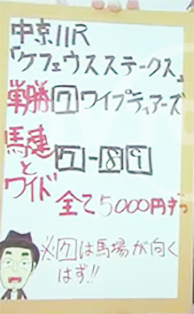 中京11R
「ケフェウスステークス」
単勝7ワイプティアーズ
馬連とワイド 7-8 9
全て5000円ずつ
※7は馬場が向くはず!!